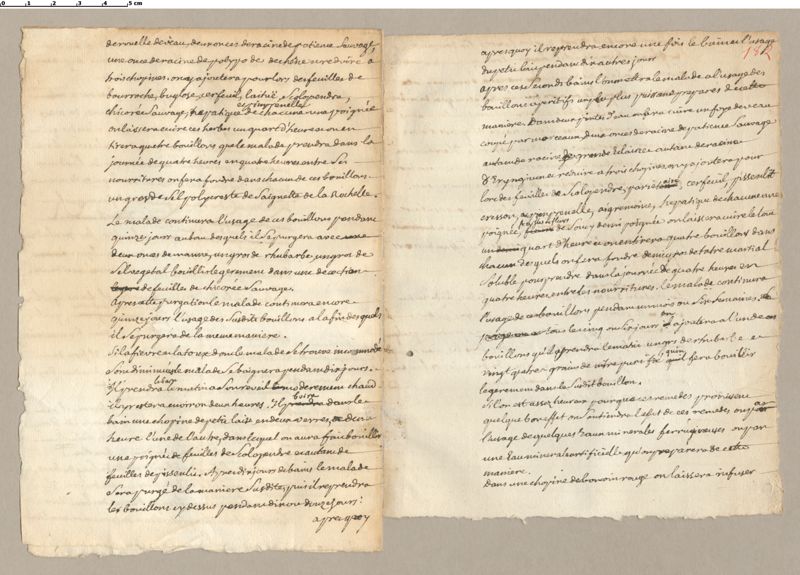 de rouelle de veau, deux onces de racine de patience Sauvage,
une once de racine de polypode de chesne, reduire a
trois chopines, on y ajoutera pour lors des feuilles de
bourroche, buglose, cerfeuil, laitue, Scolopendre,
chicorée Sauvage, hepatique de chacune une poignée
et pimprenelle
on laissera cuire ces herbes un quart d'heure et on en
tirera quatre bouillons que le malade prendra dans la
journée de quatre heures en quatre heures entre Ses
nourritures on fera fondre dans chacun de ces bouillons
un gros de Sel polycreste de Saignette de la Rochelle.
Le malade continuera l'usage de ces bouillons pendant
quinze jours au bout desquels il Se purgera avec
deux onces de manne, un gros de rhubarbe un gros de
Sel vegetal bouillis legerement dans une decoction
de feuilles de chicorée Sauvage.
Apres cette purgation le malade continuera encore
quinze jours l'usage des Susdits bouillons a la fin desquels
il Se purgera de la meme maniere.
Si la fievre et la toux dont le malade Se trouve incommodé
Sont diminués le malade Se baignera pendant dix jours.
Il prendra le matin a Son reveil moderement chaud
le bain
il y restera environ deux heures. Il dans le
boira
bain une chopine de petit lait en deux verres, d'une
heure l'une de l'autre, dans lequel on aura fait bouillir
une poignée de feuilles de Scolopendre et autant de
feuilles de pissenlit. Apres dix jours de bains le malade
Sera purgé de la maniere Susdite, puis il reprendra
les bouillons cy dessus pendant dix ou douze jours:
apres quoy
182
apres quoy il reprendra encore une fois le bain et l'usage
du petit lait pendant dix autres jours
apres ces Seconds bains l'on mettra le malade a l'usage des
bouillons aperitifs un peu plus puissans preparés de cette
maniere. Dans deux pintes d'eau on fera cuire un foye de veau
coupé par morceaux deux onces de racine de patience Sauvage
autant de racine de grande et autant de racine
d'Eryngium et reduire a trois chopines, on y ajoutera pour
lors des feuilles de Scolopendre, parietaire, cerfeuil, pissenlit
cresson, pimprenelle, aigremoine, hepatique de chacune une
poignée, de Soucy demi poignée on laissera cuire le tout
un quart d'heure et on en tirera quatre bouillons dans
chacun desquels on fera fondre demi gros de tartre martial
Soluble pour prendre dans la journée de quatre heures en
quatre heures entre les nourritures. Le malade continuera
l'usage de ces bouillons pendant un mois ou Six Semaines,
tous les cinq ou Six jours on ajoutera a l'un de
bouillons qu'il prendra le matin un gros de rhubarbe et
vingt quatre grains de nitre purifié qu'il fera bouillir
legerement dans le Susdit bouillon.
Si l'on est assez heureux pour que ces remedes produisent
quelque bon effet on Soutiendra l'effet de ces remedes
l'usage de quelques Eaux minerales ferrugineuses ou par
une Eau minerale artificielle qu'on preparera de cette
maniere.
dans une chopine de bon vin rouge on laissera infuser
0 1 2 3 4 5 cm